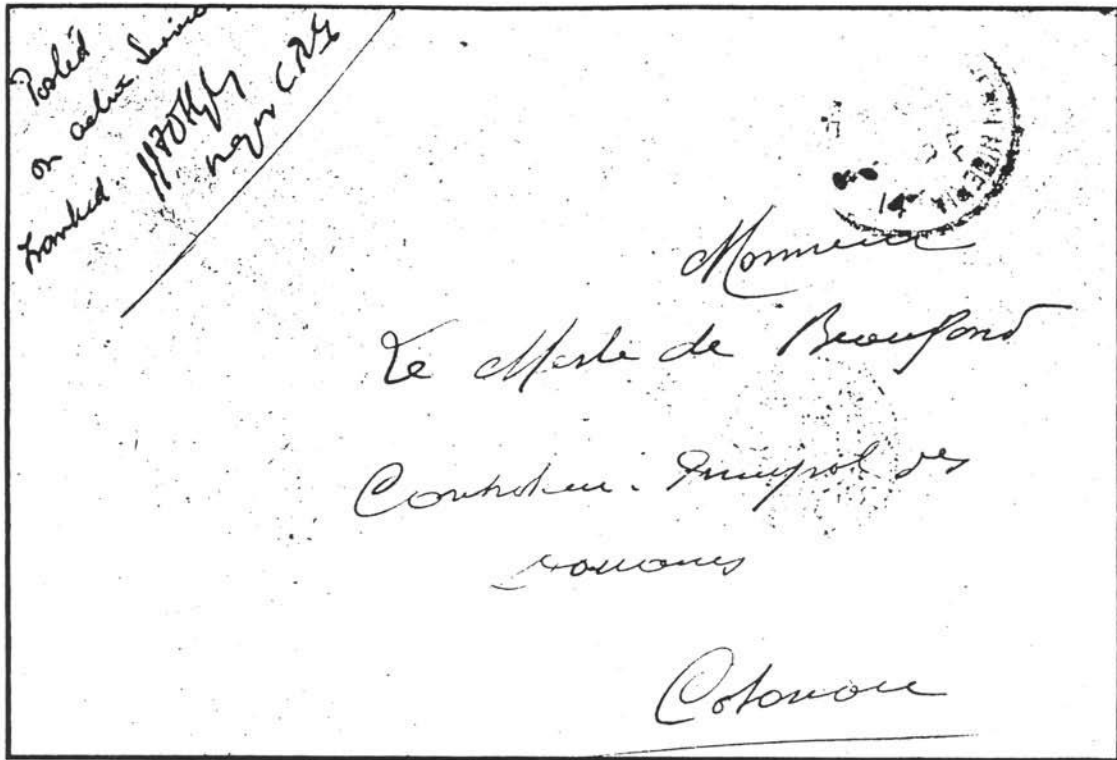 Posted
on active Service
Franked.
major
14
Monsieur
Le Merle de Beaufond
Controleur. Principal des
Douanes
Cotonou